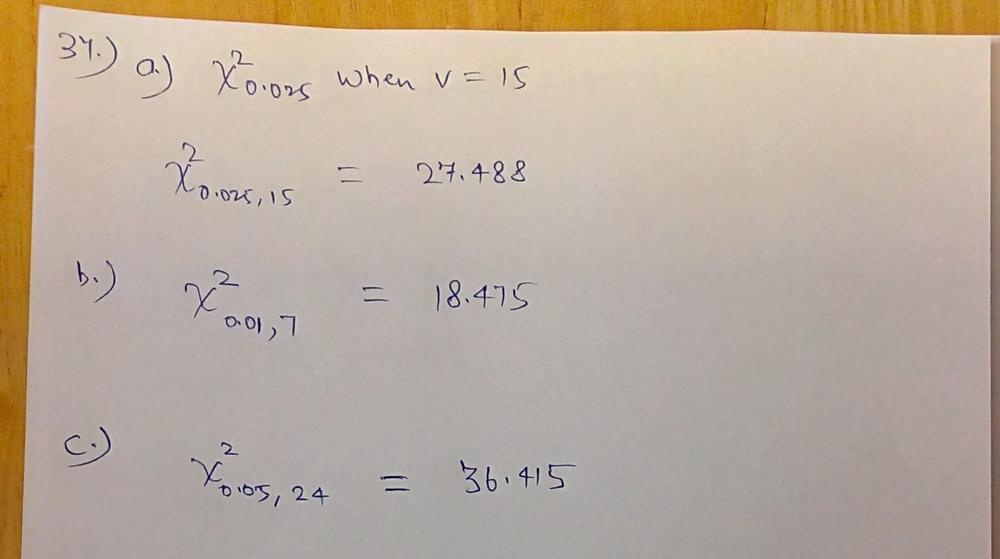 34.) a.) χ²0.025 when v = 15
χ²0.025, 15 = 27.488
b.) χ²0.01, 7 = 18.475
c.) χ²0.05, 24 = 36.415